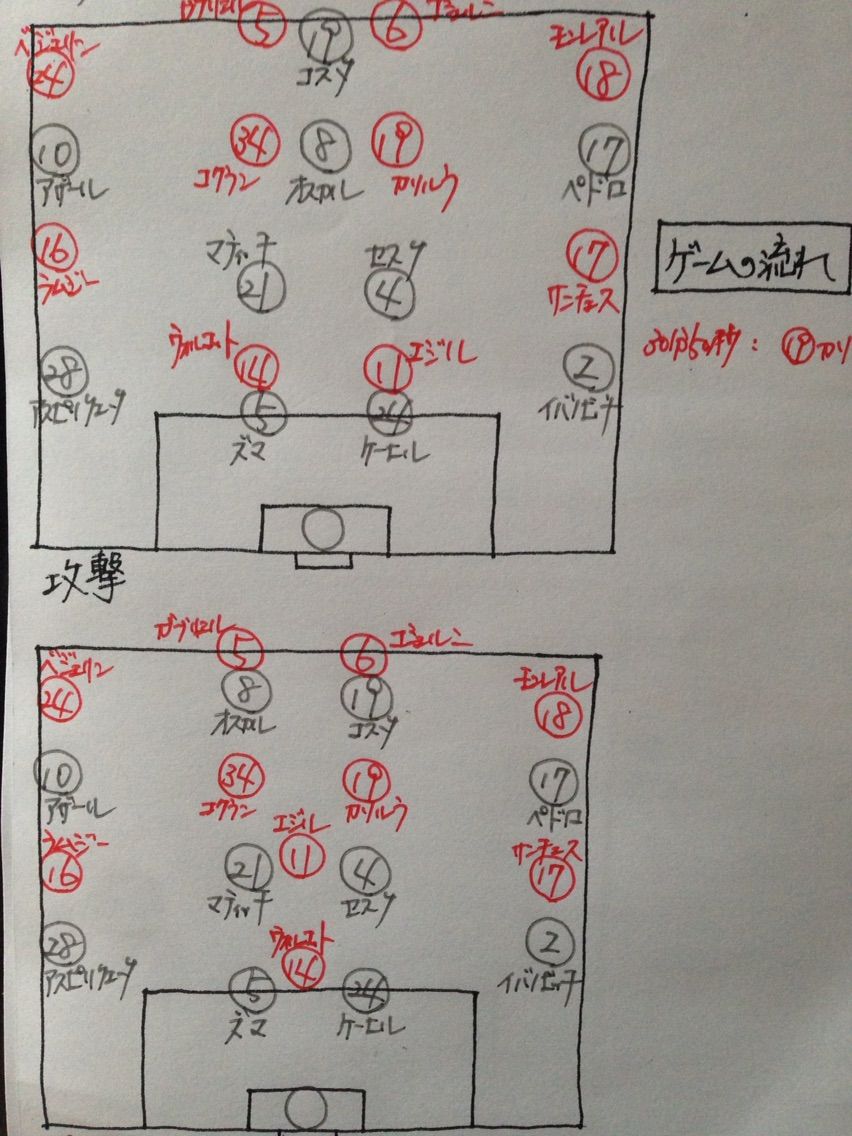 5
6
19
コスタ
ベジェリン
24
モンレアル
18
10
アザール
34
コクラン
8
オスカル
19
カソルラ
17
ペドロ
16
ラムジー
マティッチ
21
セスク
4
17
サンチェス
ゲームの流れ
ウォルコット
14
エジル
11
28
アスピリクエタ
5
ズマ
24
ケーヒル
2
イバノビッチ
攻撃
ガブリエル
5
6
ベジェリン
24
8
オスカル
19
コスタ
モンレアル
18
10
アザール
34
コクラン
19
カソルラ
17
ペドロ
ラムジー
16
エジル
11
21
マティッチ
4
セスク
サンチェス
17
28
アスピリクエタ
ウォルコット
14
5
ズマ
24
ケーヒル
2
イバノビッチ